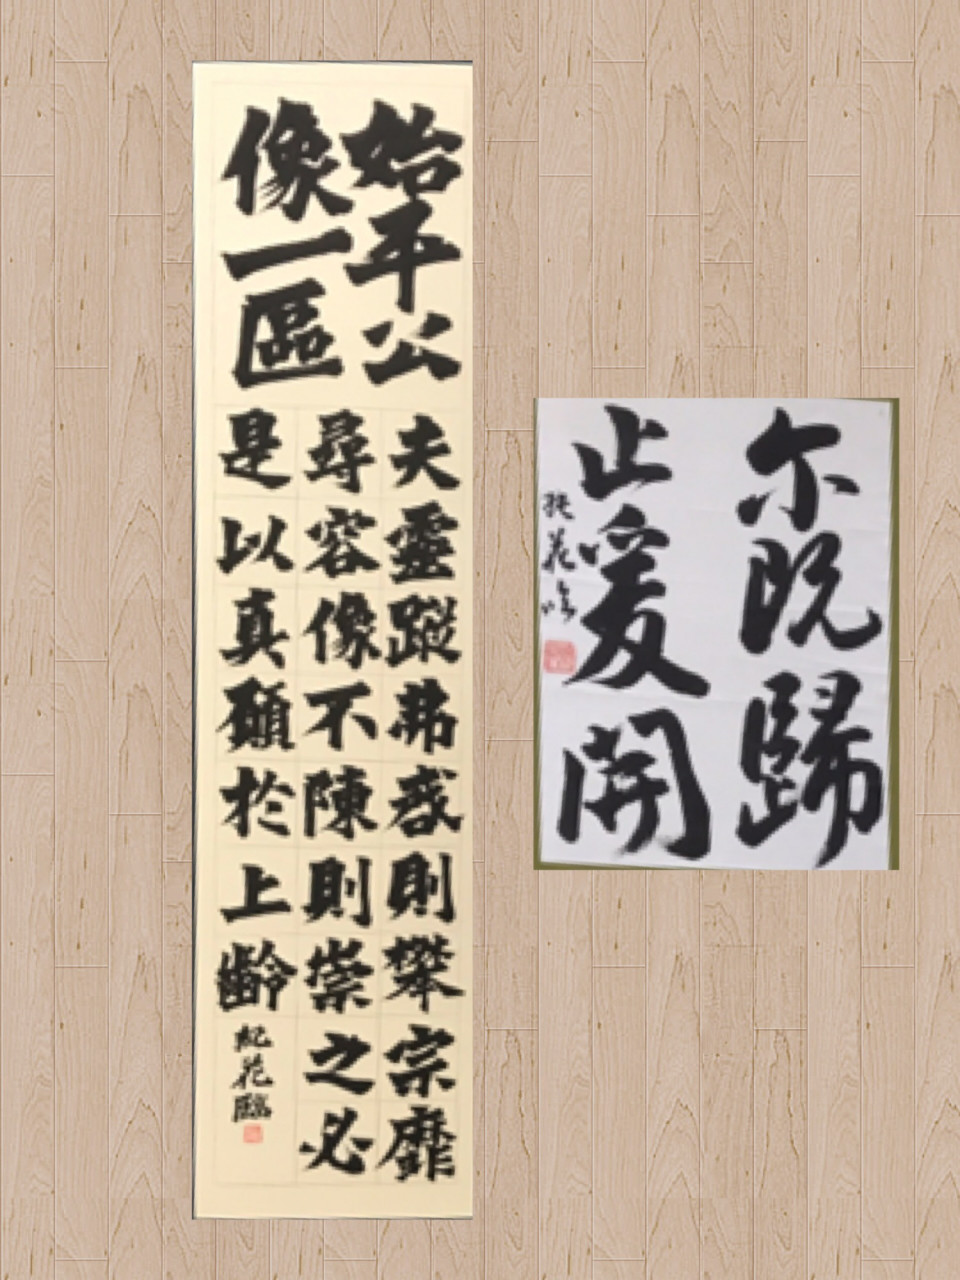 始平公
像一區
夫靈蹤弗遘則攀宗靡
尋容像不陳則崇之必
是以真顔於上齡
紀花臨
尓既歸
止爰開
花临